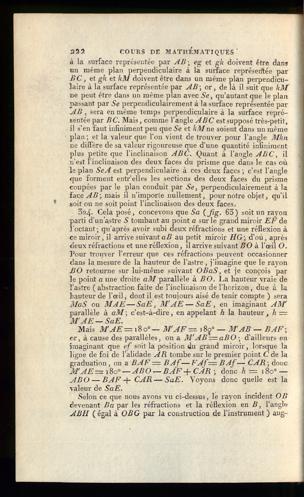 222 COURS DE MATHÉMATIQUES
à la surface représentée par AB; eg et gk doivent être dans
un même plan perpendiculaire à la surface représentée par
BC, et gk et kM doivent être dans un même plan perpendicu-
laire à la surface représentée par AB; or, de là il suit que kM
ne peut être dans un même plan avec Se, qu'autant que le plan
passant par Se perpendiculairement à la surface représentée par
AB, sera en même temps perpendiculaire à la surface repré-
sentée par BC. Mais, comme l'angle ABC est supposé très-petit,
il s'en faut infiniment peu que Se et kM ne soient dans un même
plan; et la valeur que l'on vient de trouver pour l'angle Mhn
ne diffère de sa valeur rigoureuse que d'une quantité infiniment
plus petite que l'inclinaison ABC. Quant à l'angle ABC, il
n'est l'inclinaison des deux faces du prisme que dans le cas où
le plan SeA est perpendiculaire à ces deux faces; c'est l'angle
que forment entr'elles les sections des deux faces du prisme
coupées par le plan conduit par Se, perpendiculairement à la
face AB; mais il n'importe nullement, pour notre objet, qu'il
soit ou ne soit point l'inclinaison des deux faces.
324. Cela posé, concevons que Sa (fig. 65) soit un rayon
parti d'un astre S tombant au point a sur le grand miroir EF de
l'octant; qu'après avoir subi deux réfractions et une réflexion à
ce miroir, il arrive suivant aB au petit miroir HG; d'où, après
deux réfractions et une réflexion, il arrive suivant BO à l'œil O.
Pour trouver l'erreur que ces réfractions peuvent occasionner
dans la mesure de la hauteur de l'astre, j'imagine que le rayon
BO retourne sur lui-même suivant OBaS, et je conçois par
le point a une droite aM parallèle à BO. La hauteur vraie de
l'astre (abstraction faite de l'inclinaison de l'horizon, due à la
hauteur de l'œil, dont il est toujours aisé de tenir compte) sera
MaS ou MAE — SaE, M'AE — SaE, en imaginant AM'
parallèle à aM; c'est-à-dire, en appelant h la hauteur, h =
M'AE — SaE.
Mais M'AE = 180° — M'AF = 180° — M'AB — BAF;
or, à cause des parallèles, on a M'AB = aBO; d'ailleurs en
imaginant que ef soit la position du grand miroir, lorsque la
ligne de foi de l'alidade AR tombe sur le premier point C de la
graduation, on a BAF = BAf — FAf = BAf — CAR; donc
M'AE = 180° — ABO — BAF + CAR; donc h = 180° —
ABO — BAF + CAR — SaE. Voyons donc quelle est la
valeur de SaE.
Selon ce que nous avons vu ci-dessus, le rayon incident OB
devenant Ba par les réfractions et la réflexion en B, l'angle
ABH (égal à OBG par la construction de l'instrument) aug-